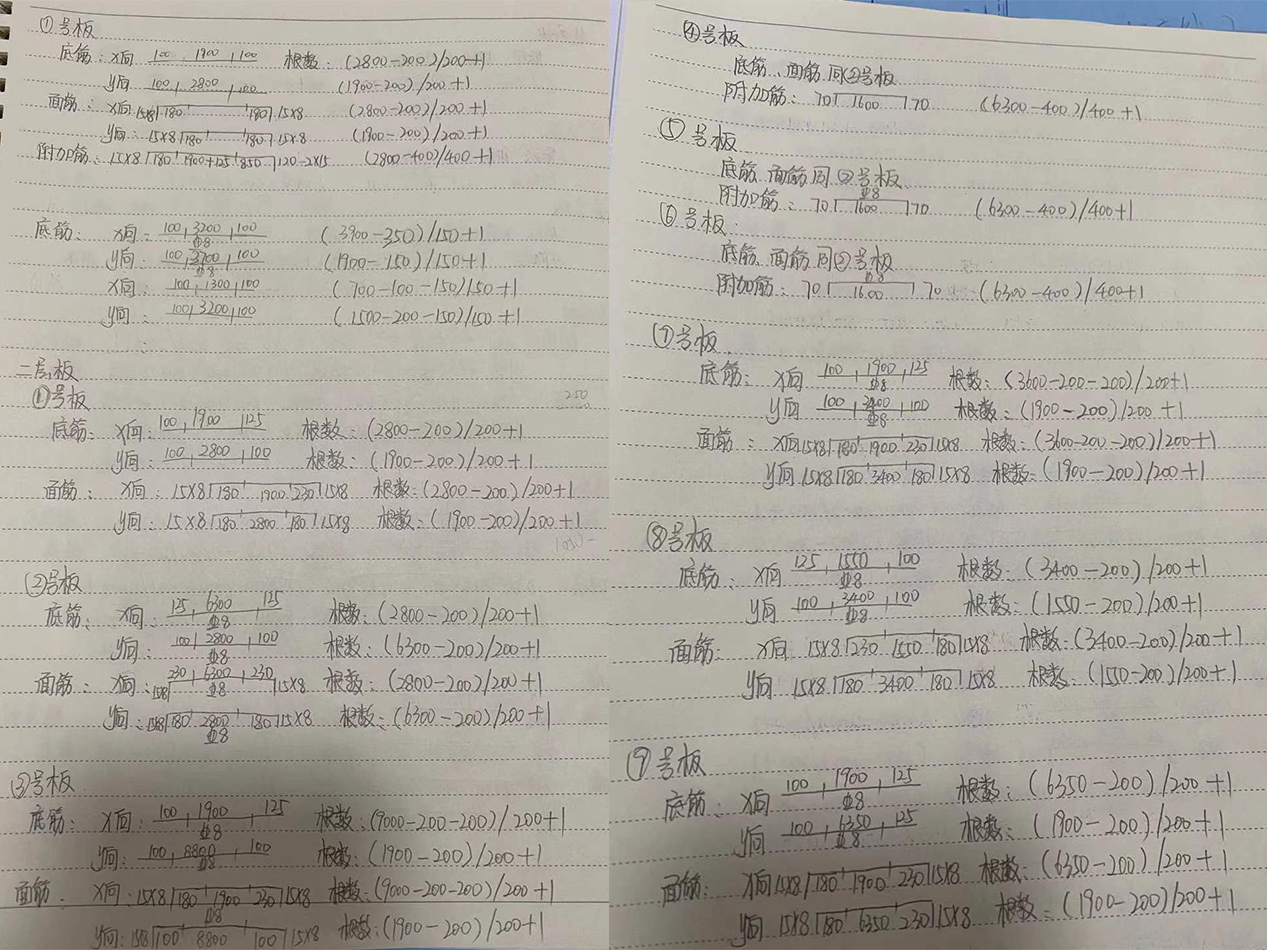 ①号板
底筋：X向 100 1900 100 根数：(2800-200)/200+1
y向 100 2800 100 (1900-200)/200+1
面筋：X向 15x8 180 180 15x8 (2800-200)/200+1
y向：15x8 180 180 15x8 (1900-200)/200+1
附加筋：15x8 180 1900+125 850 120-2x15 (2800-400)/400+1
底筋：X向：100 3200 100 Φ8 (3900-350)/150+1
y向：100 3700 100 Φ8 (1900-150)/150+1
X向：100 1300 100 (700-100-150)/150+1
y向：100 3200 100 (1500-200-150)/150+1
二层板
①号板 250
底筋：X向：100 1900 125 根数：(2800-200)/200+1
y向：100 2800 100 根数：(1900-200)/200+1
面筋：X向：15x8 180 1900 230 15x8 根数：(2800-200)/200+1
y向：15x8 180 2800 180 15x8 根数：(1900-200)/200+1
②号板
底筋：X向：125 6300 125 Φ8 根数：(2800-200)/200+1
y向：100 2800 100 Φ8 根数：(6300-200)/200+1
面筋：X向：15x8 230 6300 230 Φ8 15x8 根数：(2800-200)/200+1
y向：15x8 180 2800 180 Φ8 15x8 根数：(6300-200)/200+1
③号板
底筋：X向：100 1900 125 Φ8 根数：(9000-200-200)/200+1
y向：100 8800 100 Φ8 根数：(1900-200)/200+1
面筋 X向：15x8 180 1900 230 Φ8 15x8 根数：(9000-200-200)/200+1
y向：15x8 100 8800 100 15x8 根数：(1900-200)/200+1
④号板
底筋、面筋同②号板
附加筋：70 1600 70 (6300-400)/400+1
⑤号板
底筋、面筋同②号板
附加筋：70 Φ8 1600 70 (6300-400)/400+1
⑥号板
底筋、面筋同②号板
附加筋：70 Φ8 1600 70 (6300-400)/400+1
⑦号板
底筋：X向 100 1900 125 Φ8 根数：(3600-200-200)/200+1
y向 100 3400 100 Φ8 根数：(1900-200)/200+1
面筋：X向 15x8 180 1900 230 15x8 根数：(3600-200-200)/200+1
y向 15x8 180 3400 180 15x8 根数：(1900-200)/200+1
⑧号板
底筋：X向 125 1550 100 Φ8 根数：(3400-200)/200+1
y向 100 3400 100 Φ8 根数：(1550-200)/200+1
面筋：X向 15x8 230 1550 180 15x8 根数：(3400-200)/200+1
y向 15x8 180 3400 180 15x8 根数：(1550-200)/200+1
⑨号板
底筋：X向 100 1900 125 Φ8 根数：(6350-200)/200+1
y向 100 6350 125 Φ8 根数：(1900-200)/200+1
面筋：X向 15x8 180 1900 230 15x8 根数：(6350-200)/200+1
y向 15x8 180 6350 230 15x8 根数：(1900-200)/200+1